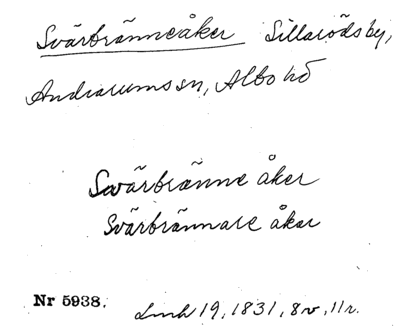 Svärbränneåker Sillarödsby,
Andrarums sn, Albo hd
Svärbränne åker
Svärbrännare åker
Nr 5938. Lmh 19, 1831, 8v, 11r.